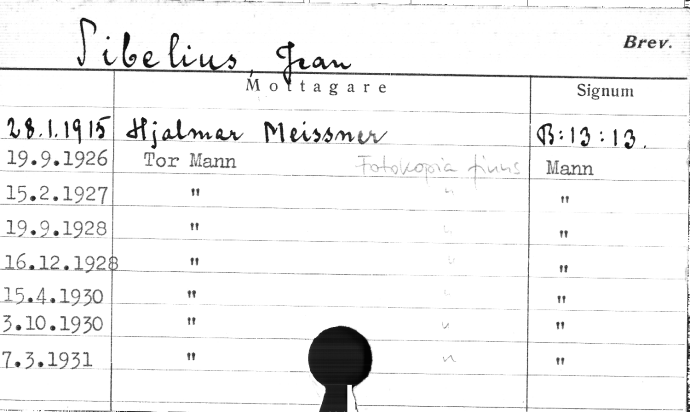 Sibelius, Jean
Brev.
Mottagare Signum
28.1.1915 Hjalmar Meissner B:13:13.
19.9.1926 Tor Mann Fotokopia finns Mann
15.2.1927 " " "
19.9.1928 " " "
16.12.1928 " " "
15.4.1930 " " "
3.10.1930 " " "
7.3.1931 " " "